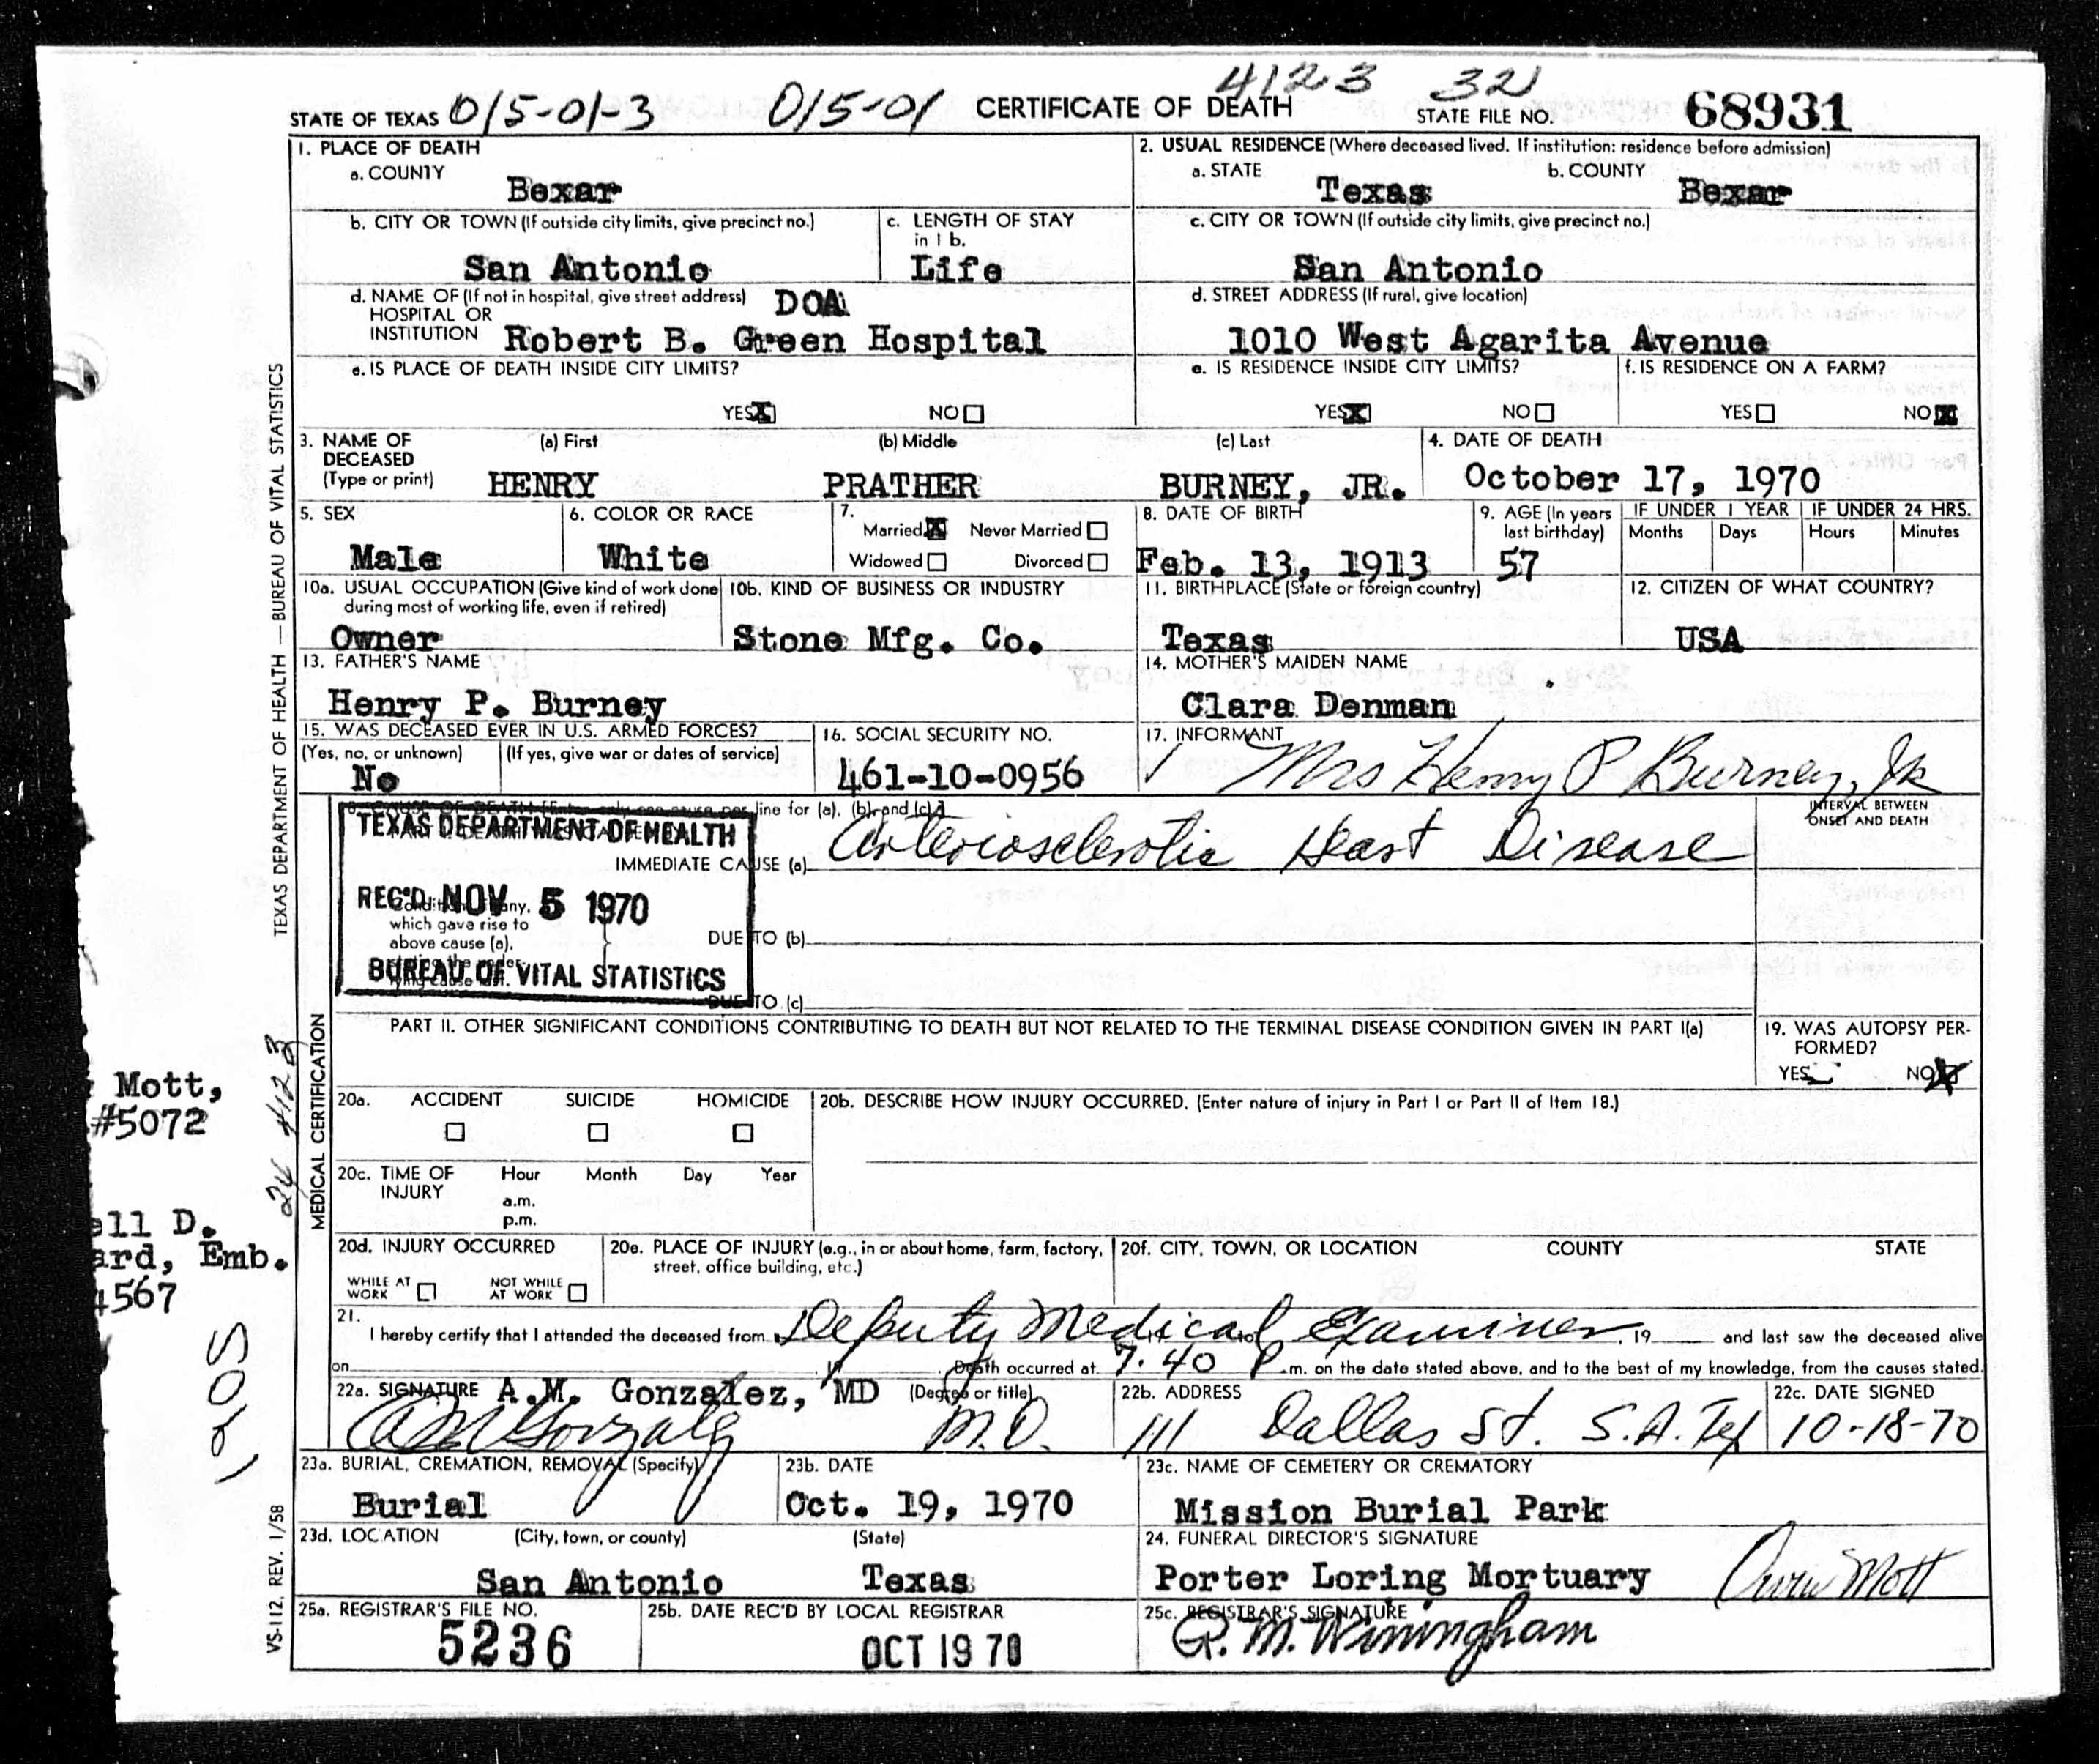 4123 32
STATE OF TEXAS 015-01-3 015-01 CERTIFICATE OF DEATH STATE FILE NO. 68931
1. PLACE OF DEATH
a. COUNTY Bexar
2. USUAL RESIDENCE (Where deceased lived. If institution: residence before admission)
a. STATE Texas b. COUNTY Bexar
b. CITY OR TOWN (If outside city limits, give precinct no.) San Antonio
c. LENGTH OF STAY in 1 b. Life
c. CITY OR TOWN (If outside city limits, give precinct no.) San Antonio
d. NAME OF (If not in hospital, give street address) DOA
HOSPITAL OR
INSTITUTION Robert B. Green Hospital
d. STREET ADDRESS (If rural, give location)
1010 West Agarita Avenue
e. IS PLACE OF DEATH INSIDE CITY LIMITS?
YES X NO
e. IS RESIDENCE INSIDE CITY LIMITS?
YES X NO
f. IS RESIDENCE ON A FARM?
YES NO X
3. NAME OF DECEASED (Type or print)
(a) First HENRY
(b) Middle PRATHER
(c) Last BURNEY, JR.
4. DATE OF DEATH October 17, 1970
5. SEX Male
6. COLOR OR RACE White
7. Married X Never Married
Widowed Divorced
8. DATE OF BIRTH Feb. 13, 1913
9. AGE (In years last birthday) 57
IF UNDER 1 YEAR Months Days
IF UNDER 24 HRS. Hours Minutes
10a. USUAL OCCUPATION (Give kind of work done during most of working life, even if retired)
Owner
10b. KIND OF BUSINESS OR INDUSTRY
Stone Mfg. Co.
11. BIRTHPLACE (State or foreign country)
Texas
12. CITIZEN OF WHAT COUNTRY?
USA
13. FATHER'S NAME
Henry P. Burney
14. MOTHER'S MAIDEN NAME
Clara Denman
15. WAS DECEASED EVER IN U.S. ARMED FORCES?
(Yes, no, or unknown) No (If yes, give war or dates of service)
16. SOCIAL SECURITY NO.
461-10-0956
17. INFORMANT
Mrs Henry P Burney, Jr
line for (a), (b), and (c)
INTERVAL BETWEEN ONSET AND DEATH
TEXAS DEPARTMENT OF HEALTH
REC'D. NOV 5 1970
BUREAU OF VITAL STATISTICS
IMMEDIATE CAUSE (a) Arteriosclerotic Heart Disease
which gave rise to
above cause (a),
DUE TO (b)
DUE TO (c)
PART II. OTHER SIGNIFICANT CONDITIONS CONTRIBUTING TO DEATH BUT NOT RELATED TO THE TERMINAL DISEASE CONDITION GIVEN IN PART I(a)
19. WAS AUTOPSY PERFORMED?
YES NO X
20a. ACCIDENT SUICIDE HOMICIDE
20b. DESCRIBE HOW INJURY OCCURRED. (Enter nature of injury in Part I or Part II of Item 18.)
20c. TIME OF INJURY Hour Month Day Year
a.m.
p.m.
20d. INJURY OCCURRED
WHILE AT WORK NOT WHILE AT WORK
20e. PLACE OF INJURY (e.g., in or about home, farm, factory, street, office building, etc.)
20f. CITY, TOWN, OR LOCATION COUNTY STATE
21. I hereby certify that I attended the deceased from Deputy Medical Examiner, 19 and last saw the deceased alive
on 19 Death occurred at 7:40 P m. on the date stated above, and to the best of my knowledge, from the causes stated.
22a. SIGNATURE A.M. Gonzalez, MD (Degree or title)
AM Gonzalez M.D.
22b. ADDRESS
111 Dallas St. S.A. Tex
22c. DATE SIGNED
10-18-70
23a. BURIAL, CREMATION, REMOVAL (Specify)
Burial
23b. DATE
Oct. 19, 1970
23c. NAME OF CEMETERY OR CREMATORY
Mission Burial Park
23d. LOCATION (City, town, or county) (State)
San Antonio Texas
24. FUNERAL DIRECTOR'S SIGNATURE
Porter Loring Mortuary Mott
25a. REGISTRAR'S FILE NO.
5236
25b. DATE REC'D BY LOCAL REGISTRAR
OCT 19 70
25c. REGISTRAR'S SIGNATURE
G. M. Winingham
TEXAS DEPARTMENT OF HEALTH — BUREAU OF VITAL STATISTICS
MEDICAL CERTIFICATION
VS-112, REV. 1/58
Mott,
#5072
ell D.
ard, Emb.
4567
24 4123
1205